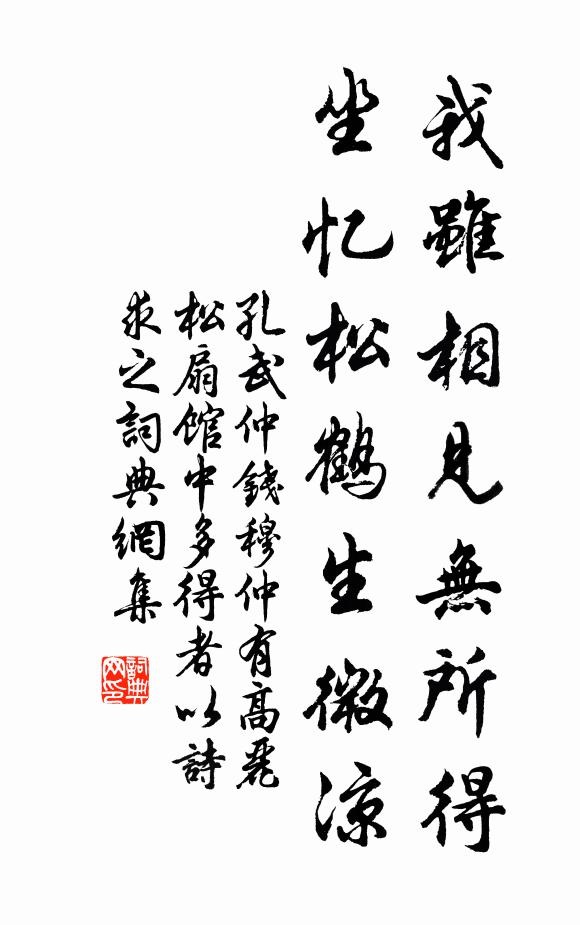 我雖相見無所得
坐忆松鶴生微涼
孔武仲錢穆仲有高麗
松扇館中多得者以詩
求之詞典網集
詞典
网印